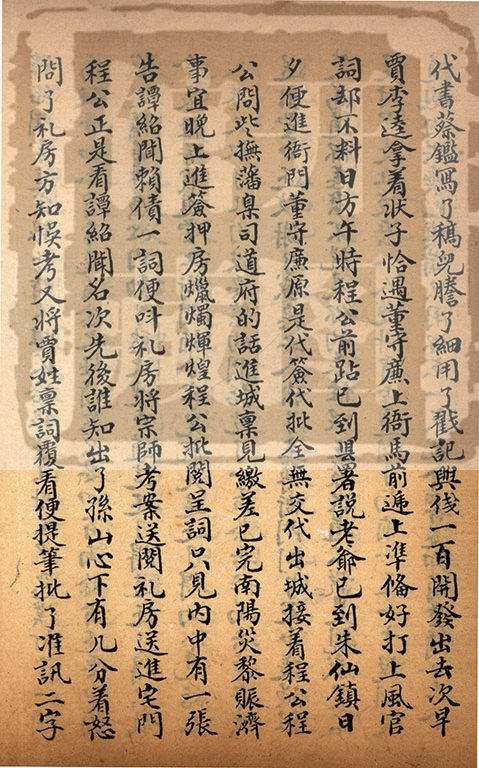 代書蔡鑑寫了稿兒謄了細用了戳記與伐一百開發出去次早
賈李逵拿着状子恰遇董守廉上衙馬前遞上準俻好打上風官
詞却不料日方午時程公前跕已到县署說老爺已到朱仙鎮日
夕便進衙門董守廉原是代簽代批全無交代出城接着程公程
公問些撫藩臬司道府的話進城禀見繳差已完南陽災黎賑濟
事宜晚上進簽押房爉燭煇煌程公批閱呈詞只見內中有一張
告譚紹聞賴債一詞便呌礼房將宗師考案送閱礼房送進宅門
程公正是看譚紹聞名次先後誰知出了孫山心下有几分着怒
問了礼房方知悞考又將賈姓禀詞覆看便提筆批了准訊二字